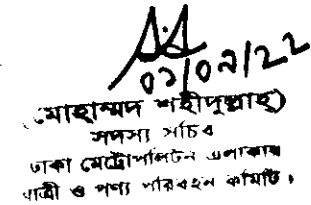 ০১/০৯/২২
(মোহাম্মদ শহীদুল্লাহ)
সদস্য সচিব
ঢাকা মেট্রোপলিটন এলাকায়
যাত্রী ও পণ্য পরিবহন কমিটি।